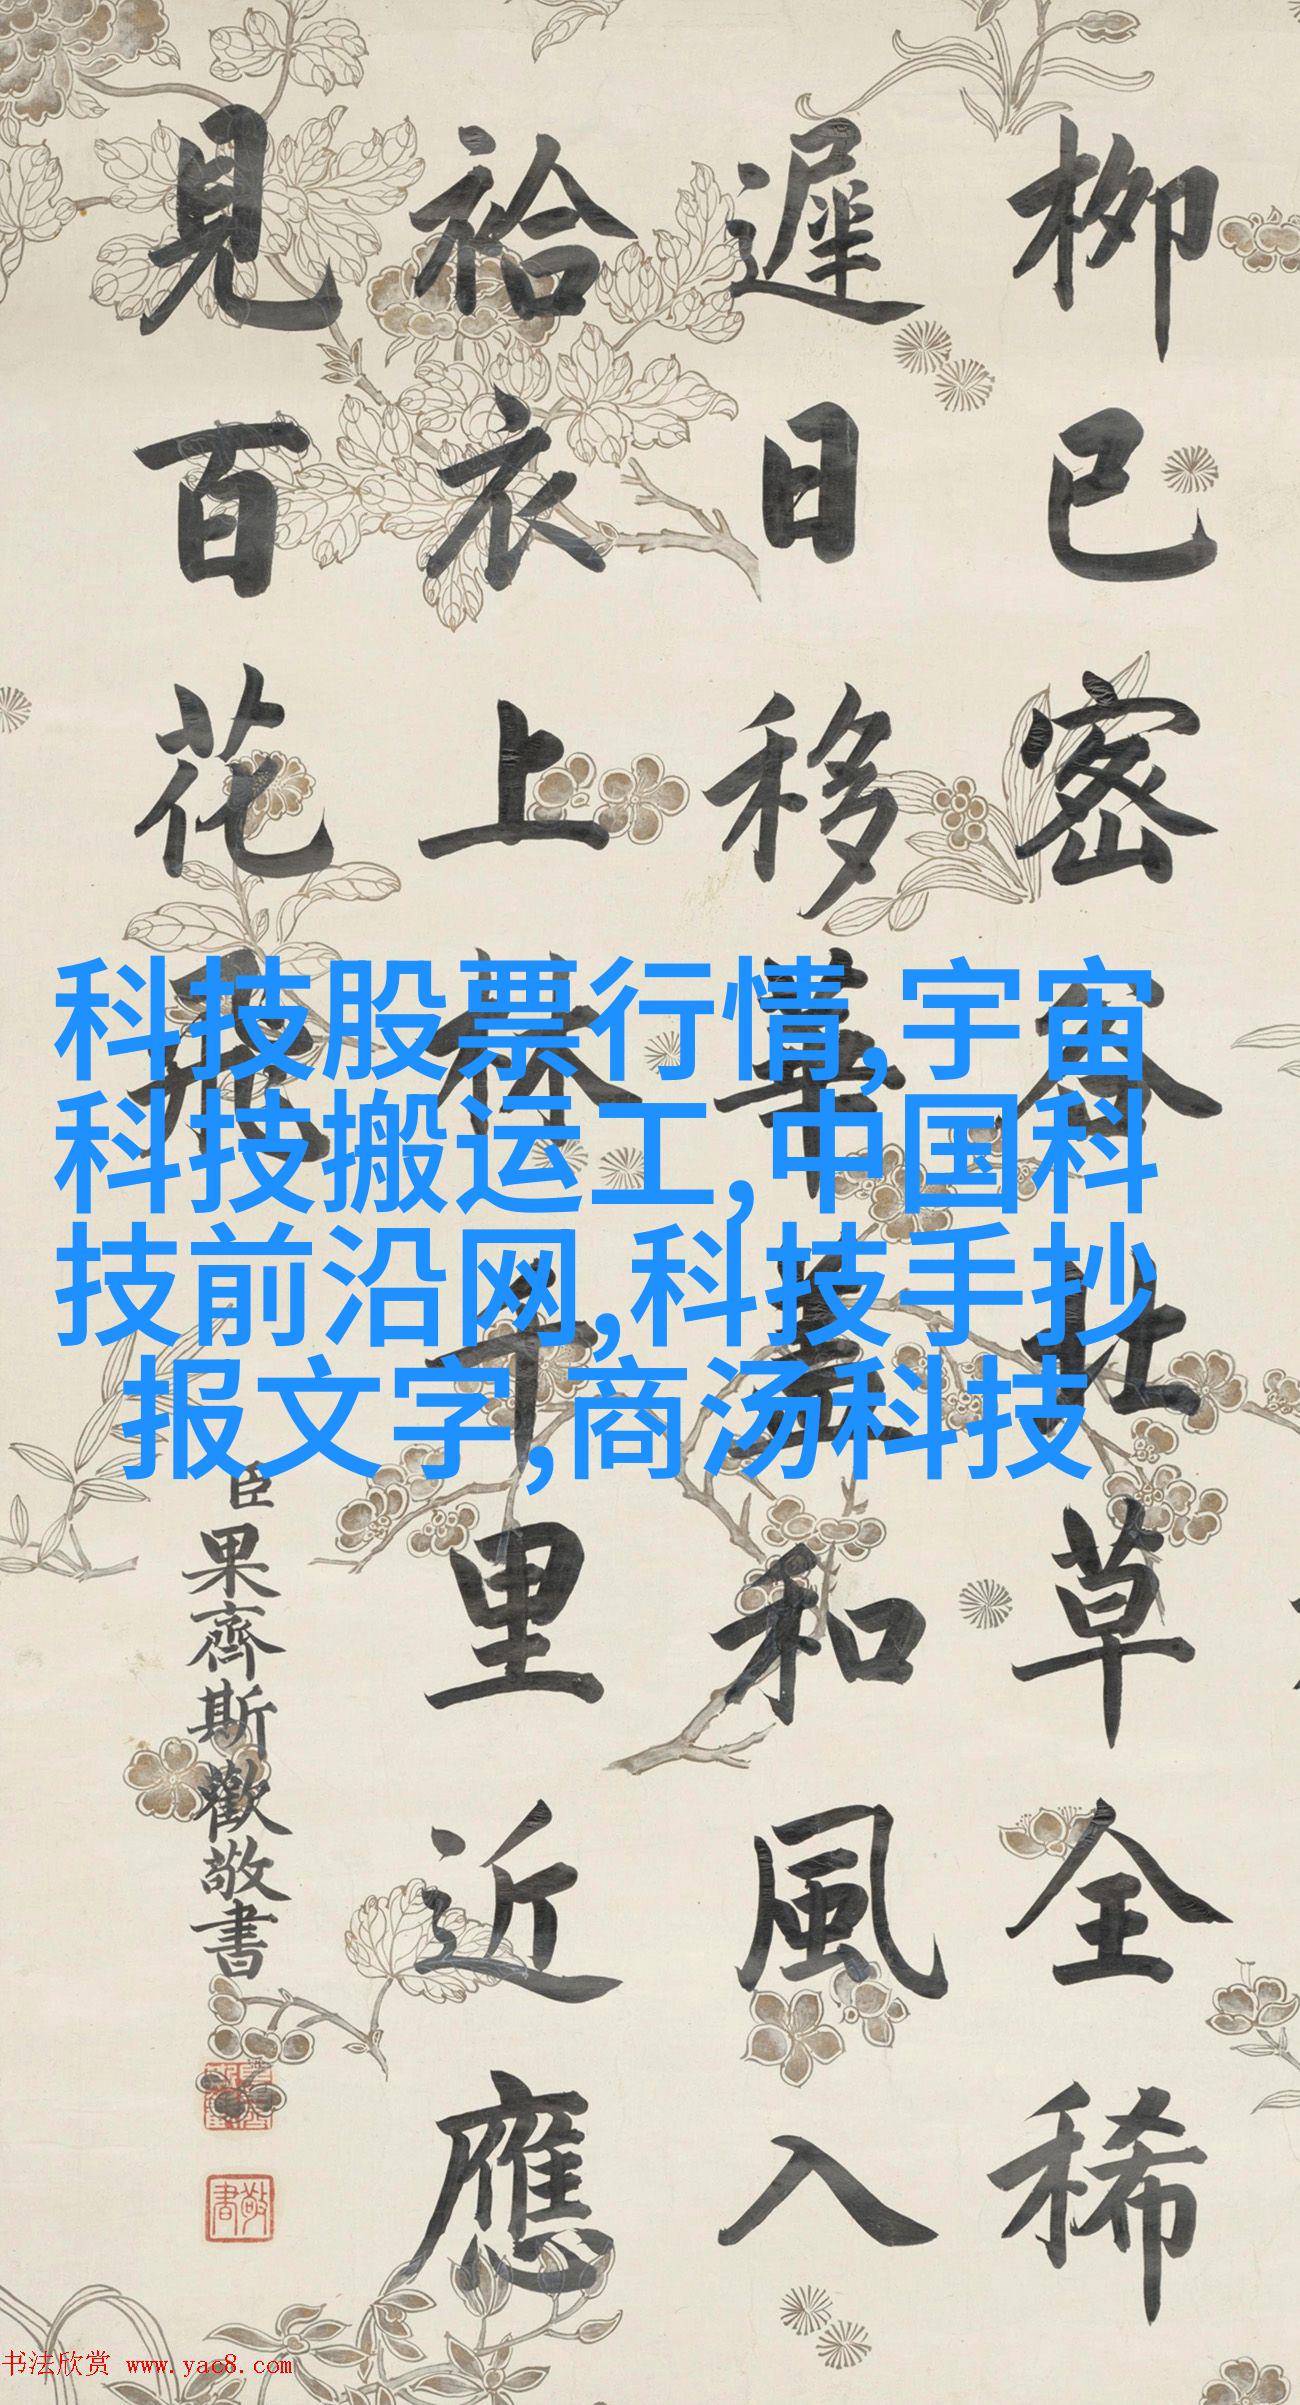 柳已密草全稀
遲日移華蓋和風入
袷衣上林千里近應
見百花飛
臣果齊斯歡敬書
敬書
科技股票行情,宇宙
科技搬运工,中国科
技前沿网,科技手抄
报文字,商汤科技
书法欣赏 www.yac8.com